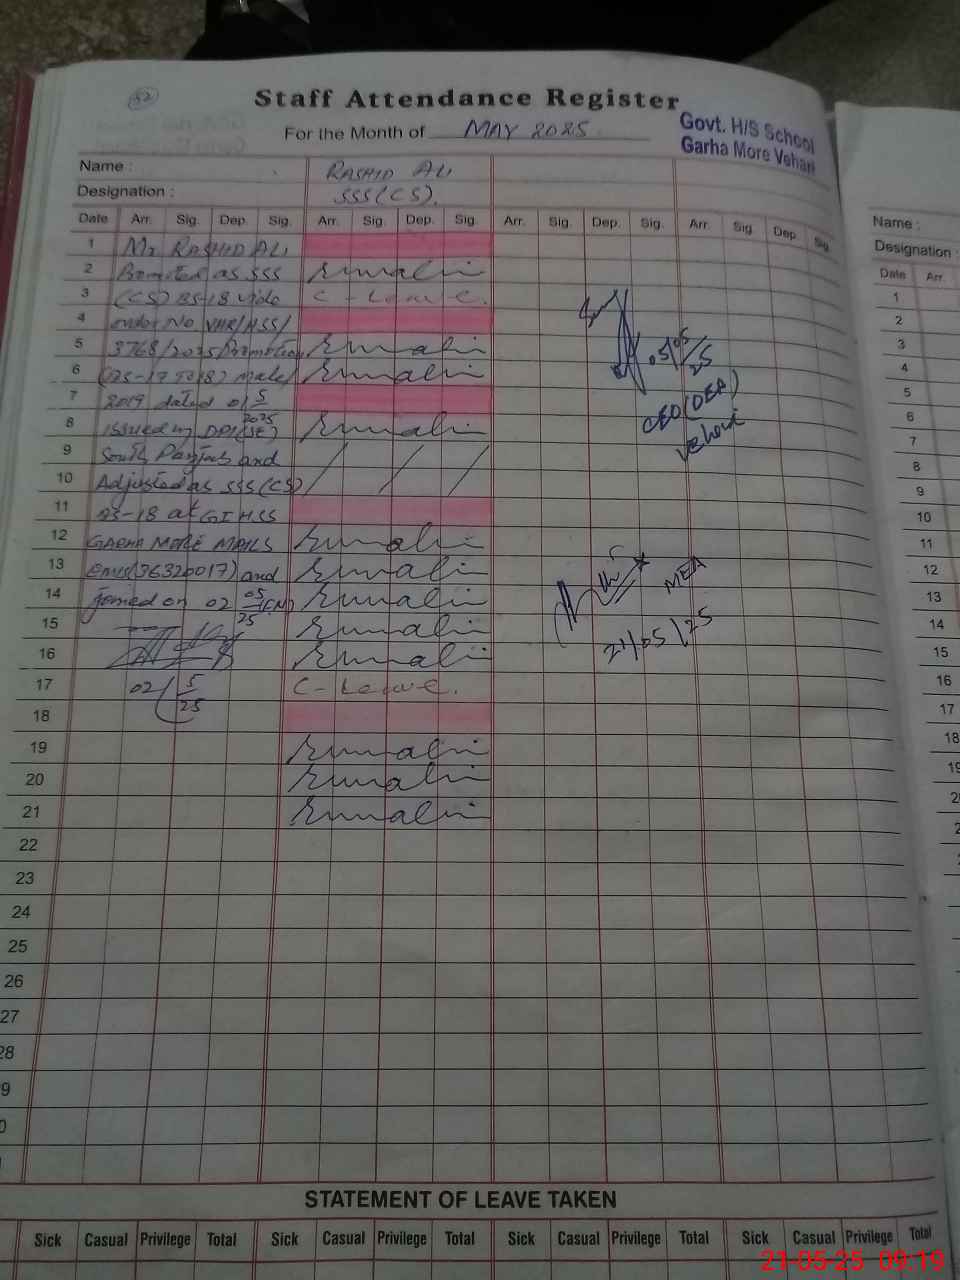 52
Staff Attendance Register
For the Month of MAY 2025
Govt. H/S School
Garha More Vehari
Name : RASHID ALI
Designation : SSS(CS).
Date Arr. Sig. Dep. Sig. Arr. Sig. Dep. Sig. Arr. Sig. Dep. Sig. Arr. Sig. Dep. Sig.
1 Mr RASHID ALI
2 Promoted as SSS
3 (CS) BS-18 vide C-Leave.
4 order No VHR/HSS/
5 3768/2025/Promotion
6 (BS-17 To 18) Male/
7 2019 dated 01 5
2025
8 issued by DPI(SE)
9 South Punjab and
10 Adjusted as SSS(CS)
11 BS-18 at G HSS
12 GARHA MORE MAILS
13 emis(36320017) and
14 joined on 02 05 (F.N)
25
15
16
17 02/5 C-Leave.
25
18
19
20
21
22
23
24
25
26
27
28
9
0
05/05/25
CEO(DEA)
Vehari
MEA
21/05/25
STATEMENT OF LEAVE TAKEN
Sick Casual Privilege Total Sick Casual Privilege Total Sick Casual Privilege Total Sick Casual Privilege Total
Name :
Designation :
Date Arr.
1
2
3
4
5
6
7
8
9
10
11
12
13
14
15
16
17
18
19
20
21-05-25 09:19